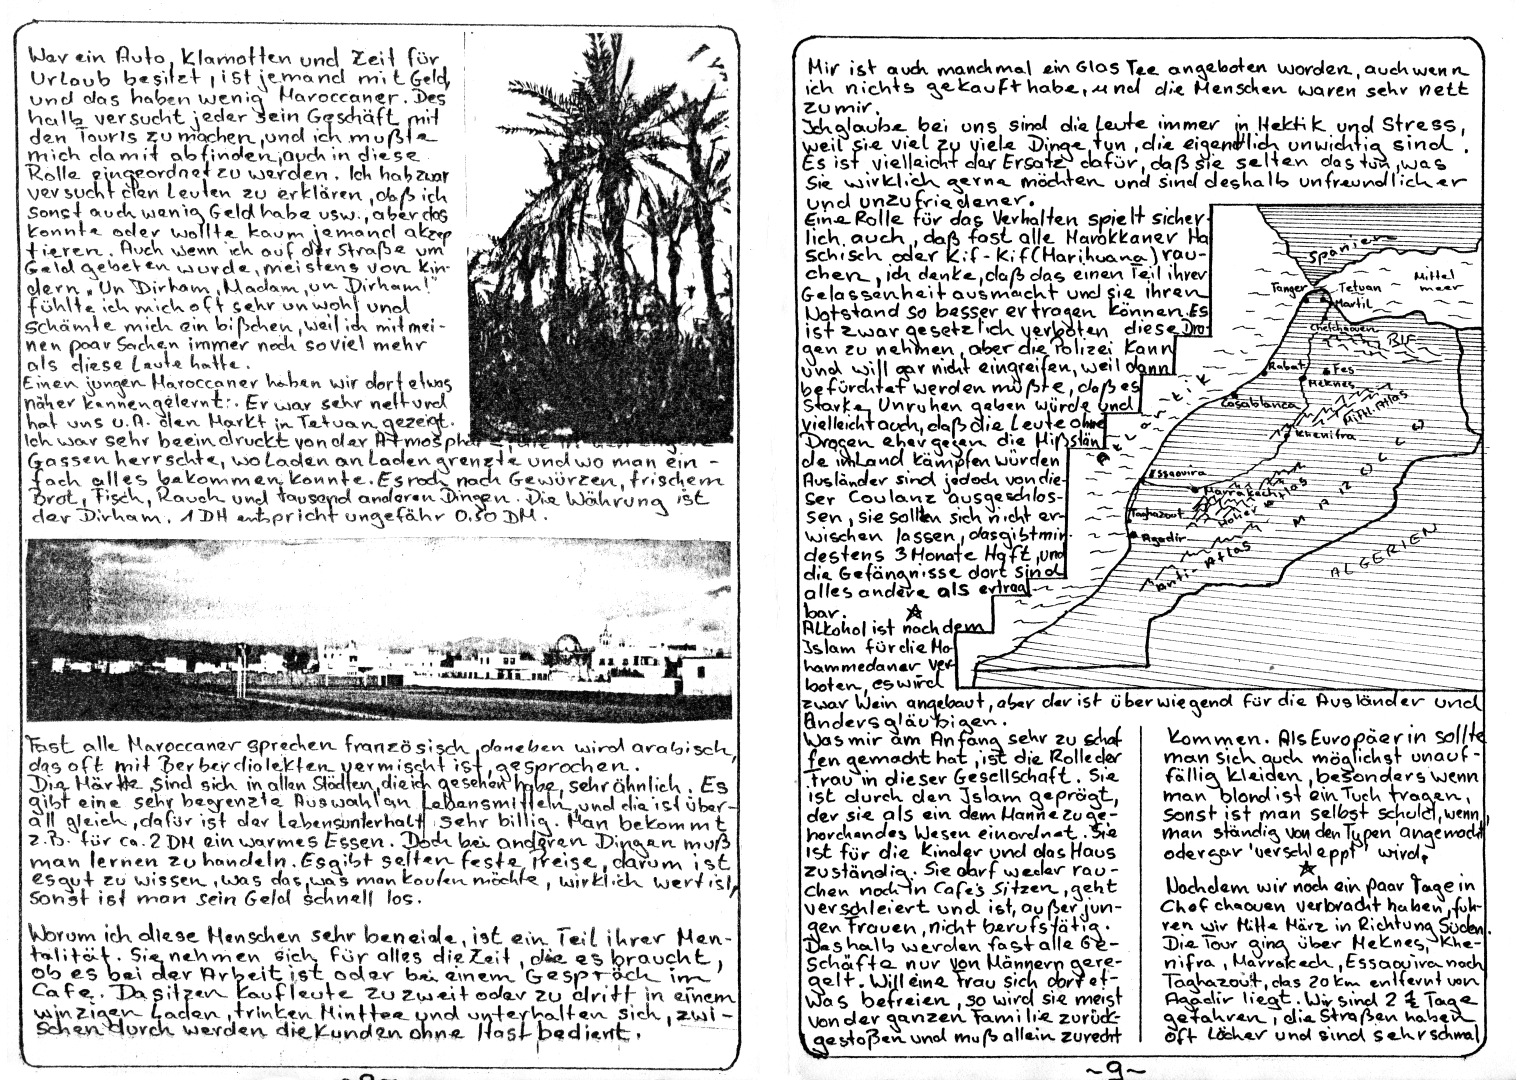 Wer ein Auto, Klamotten und Zeit für
Urlaub besitzt, ist jemand mit Geld,
und das haben wenig Maroccaner. Des
halb versucht jeder sein Geschäft mit
den Touris zu machen, und ich mußte
mich damit abfinden, auch in diese
Rolle eingeordnet zu werden. Ich hab zwar
versucht den Leuten zu erklären, daß ich
sonst auch wenig Geld habe usw., aber das
konnte oder wollte kaum jemand akzep
tieren. Auch wenn ich auf der Straße um
Geld gebeten wurde, meistens von Kin-
dern „Un Dirham, Madam, un Dirham!"
fühlte ich mich oft sehr unwohl und
schämte mich ein bißchen, weil ich mit mei-
nen paar Sachen immer noch soviel mehr
als diese Leute hatte.
Einen jungen Maroccaner haben wir dort etwas
näher kennengelernt: Er war sehr nett und
hat uns u.A. den Markt in Tetuan gezeigt.
Ich war sehr beeindruckt von der Atmosphäre, die in den engen
Gassen herrschte, wo Laden an Laden grenzte und wo man ein-
fach alles bekommen konnte. Es roch nach Gewürzen, frischem
Brot, Fisch, Rauch und tausend anderen Dingen. Die Währung ist
der Dirham. 1 DH entspricht ungefähr 0.50 DM.
Fast alle Maroccaner sprechen französisch, daneben wird arabisch,
das oft mit Berberdialekten vermischt ist, gesprochen.
Die Märkte sind sich in allen Städten, die ich gesehen habe, sehr ähnlich. Es
gibt eine sehr begrenzte Auswahl an Lebensmitteln, und die ist über-
all gleich, dafür ist der Lebensunterhalt sehr billig. Man bekommt
z.B. für ca. 2 DM ein warmes Essen. Doch bei anderen Dingen muß
man lernen zu handeln. Es gibt selten feste Preise, darum ist
es gut zu wissen, was das, was man kaufen möchte, wirklich wert ist,
sonst ist man sein Geld schnell los.
Worum ich diese Menschen sehr beneide, ist ein Teil ihrer Men-
talität. Sie nehmen sich für alles die Zeit, die es braucht,
ob es bei der Arbeit ist oder bei einem Gespräch im
Cafe. Da sitzen Kaufleute zu zweit oder zu dritt in einem
winzigen Laden, trinken Minttee und unterhalten sich, zwi-
schendurch werden die Kunden ohne Hast bedient.
Mir ist auch manchmal ein Glas Tee angeboten worden, auch wenn
ich nichts gekauft habe, und die Menschen waren sehr nett
zu mir.
Ich glaube bei uns sind die Leute immer in Hektik und Stress,
weil sie viel zu viele Dinge tun, die eigentlich unwichtig sind.
Es ist vielleicht der Ersatz dafür, daß sie selten das tun, was
sie wirklich gerne möchten und sind deshalb unfreundlicher
und unzufriedener.
Eine Rolle für das Verhalten spielt sicher-
lich auch, daß fast alle Marokkaner Ha
schisch oder Kif-Kif (Marihuana) rau-
chen, ich denke, daß das einen Teil ihrer
Gelassenheit ausmacht und sie ihren
Notstand so besser ertragen können. Es
ist zwar gesetzlich verboten diese Dro-
gen zu nehmen, aber die Polizei kann
und will gar nicht eingreifen, weil dann
befürchtet werden müßte, daß es
starke Unruhen geben würde und
vielleicht auch, daß die Leute ohne
Drogen eher gegen die Mißstän
de im Land kämpfen würden
Ausländer sind jedoch von die-
ser Coulanz ausgeschlos-
sen, sie sollten sich nicht er-
wischen lassen, das gibt min
destens 3 Monate Haft, und
die Gefängnisse dort sind
alles andere als ertrag
bar.
Alkohol ist nach dem
Islam für die Mo
hammedaner ver-
boten, es wird
zwar Wein angebaut, aber der ist überwiegend für die Ausländer und
Andersgläubigen.
Spanien
Mittel
meer
Tanger
Tetuan
Martil
Chefchaouen
Rif
Rabat
Fes
Meknes
Casablanca
Mittl. Atlas
Khenifra
Atlantik
Essaouira
Marrakech
Hoher Atlas
Taghazout
Agadir
Anti-Atlas
MAROCCO
ALGERIEN
Was mir am Anfang sehr zu schaf
fen gemacht hat, ist die Rolle der
Frau in dieser Gesellschaft. Sie
ist durch den Islam geprägt,
der sie als ein dem Manne zuge-
horchendes Wesen einordnet. Sie
ist für die Kinder und das Haus
zuständig. Sie darf weder rau-
chen noch in Cafe's sitzen, geht
verschleiert und ist, außer jun-
gen Frauen, nicht berufstätig.
Deshalb werden fast alle Ge-
schäfte nur von Männern gere-
gelt. Will eine Frau sich dort et-
was befreien, so wird sie meist
von der ganzen Familie zurück-
gestoßen und muß allein zurecht
kommen. Als Europäerin sollte
man sich auch möglichst unauf-
fällig kleiden, besonders wenn
man blond ist ein Tuch tragen,
sonst ist man selbst schuld, wenn
man ständig von den Typen angemacht
oder gar 'verschleppt' wird.
Nachdem wir noch ein paar Tage in
Chefchaouen verbracht haben, fuh-
ren wir Mitte März in Richtung Süden.
Die Tour ging über Meknes, Khe-
nifra, Marrakech, Essaouira nach
Taghazout, das 20 km entfernt von
Agadir liegt. Wir sind 2 ½ Tage
gefahren, die Straßen haben
oft Löcher und sind sehr schmal
~9~